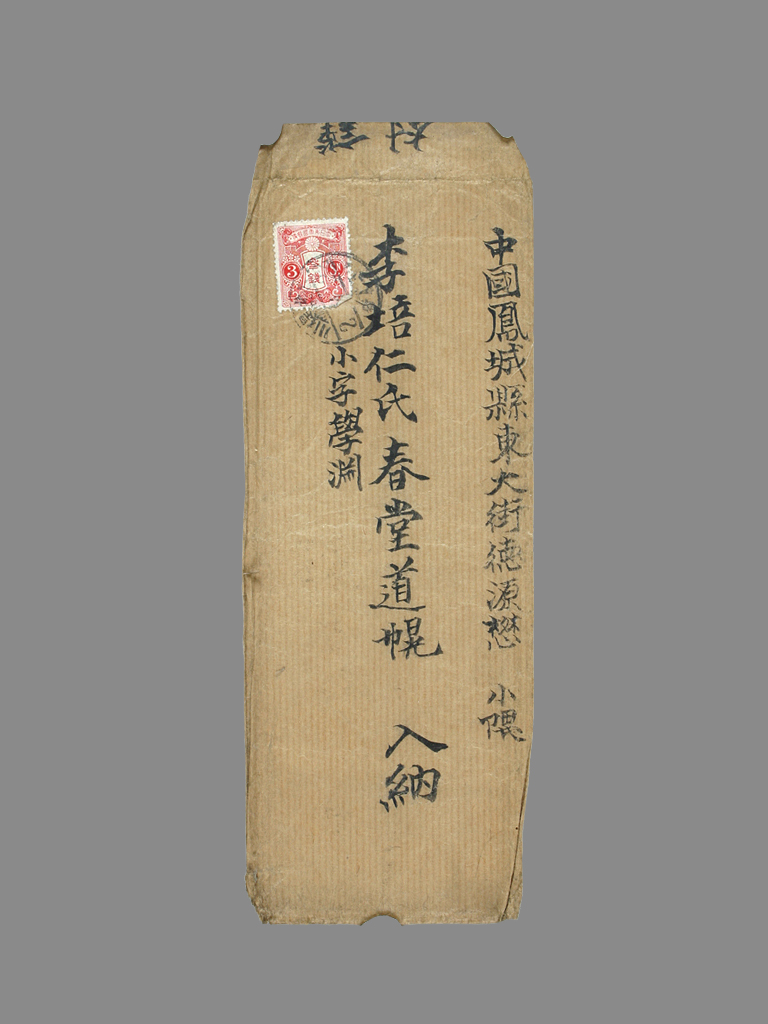 中國鳳城縣東大街德源懋 小隈
李培仁氏春堂道幌 入納
小字學淵
3